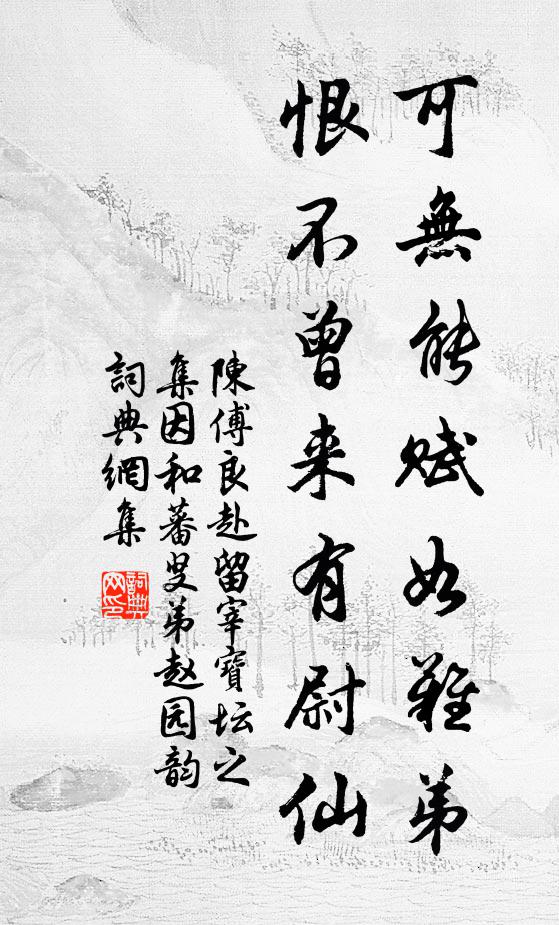 可無能賦如難弟
恨不曾来有尉仙
陳傅良赴留宰寶坛之
集因和蕃叟弟赵园韵
詞典網集
詞典
网印